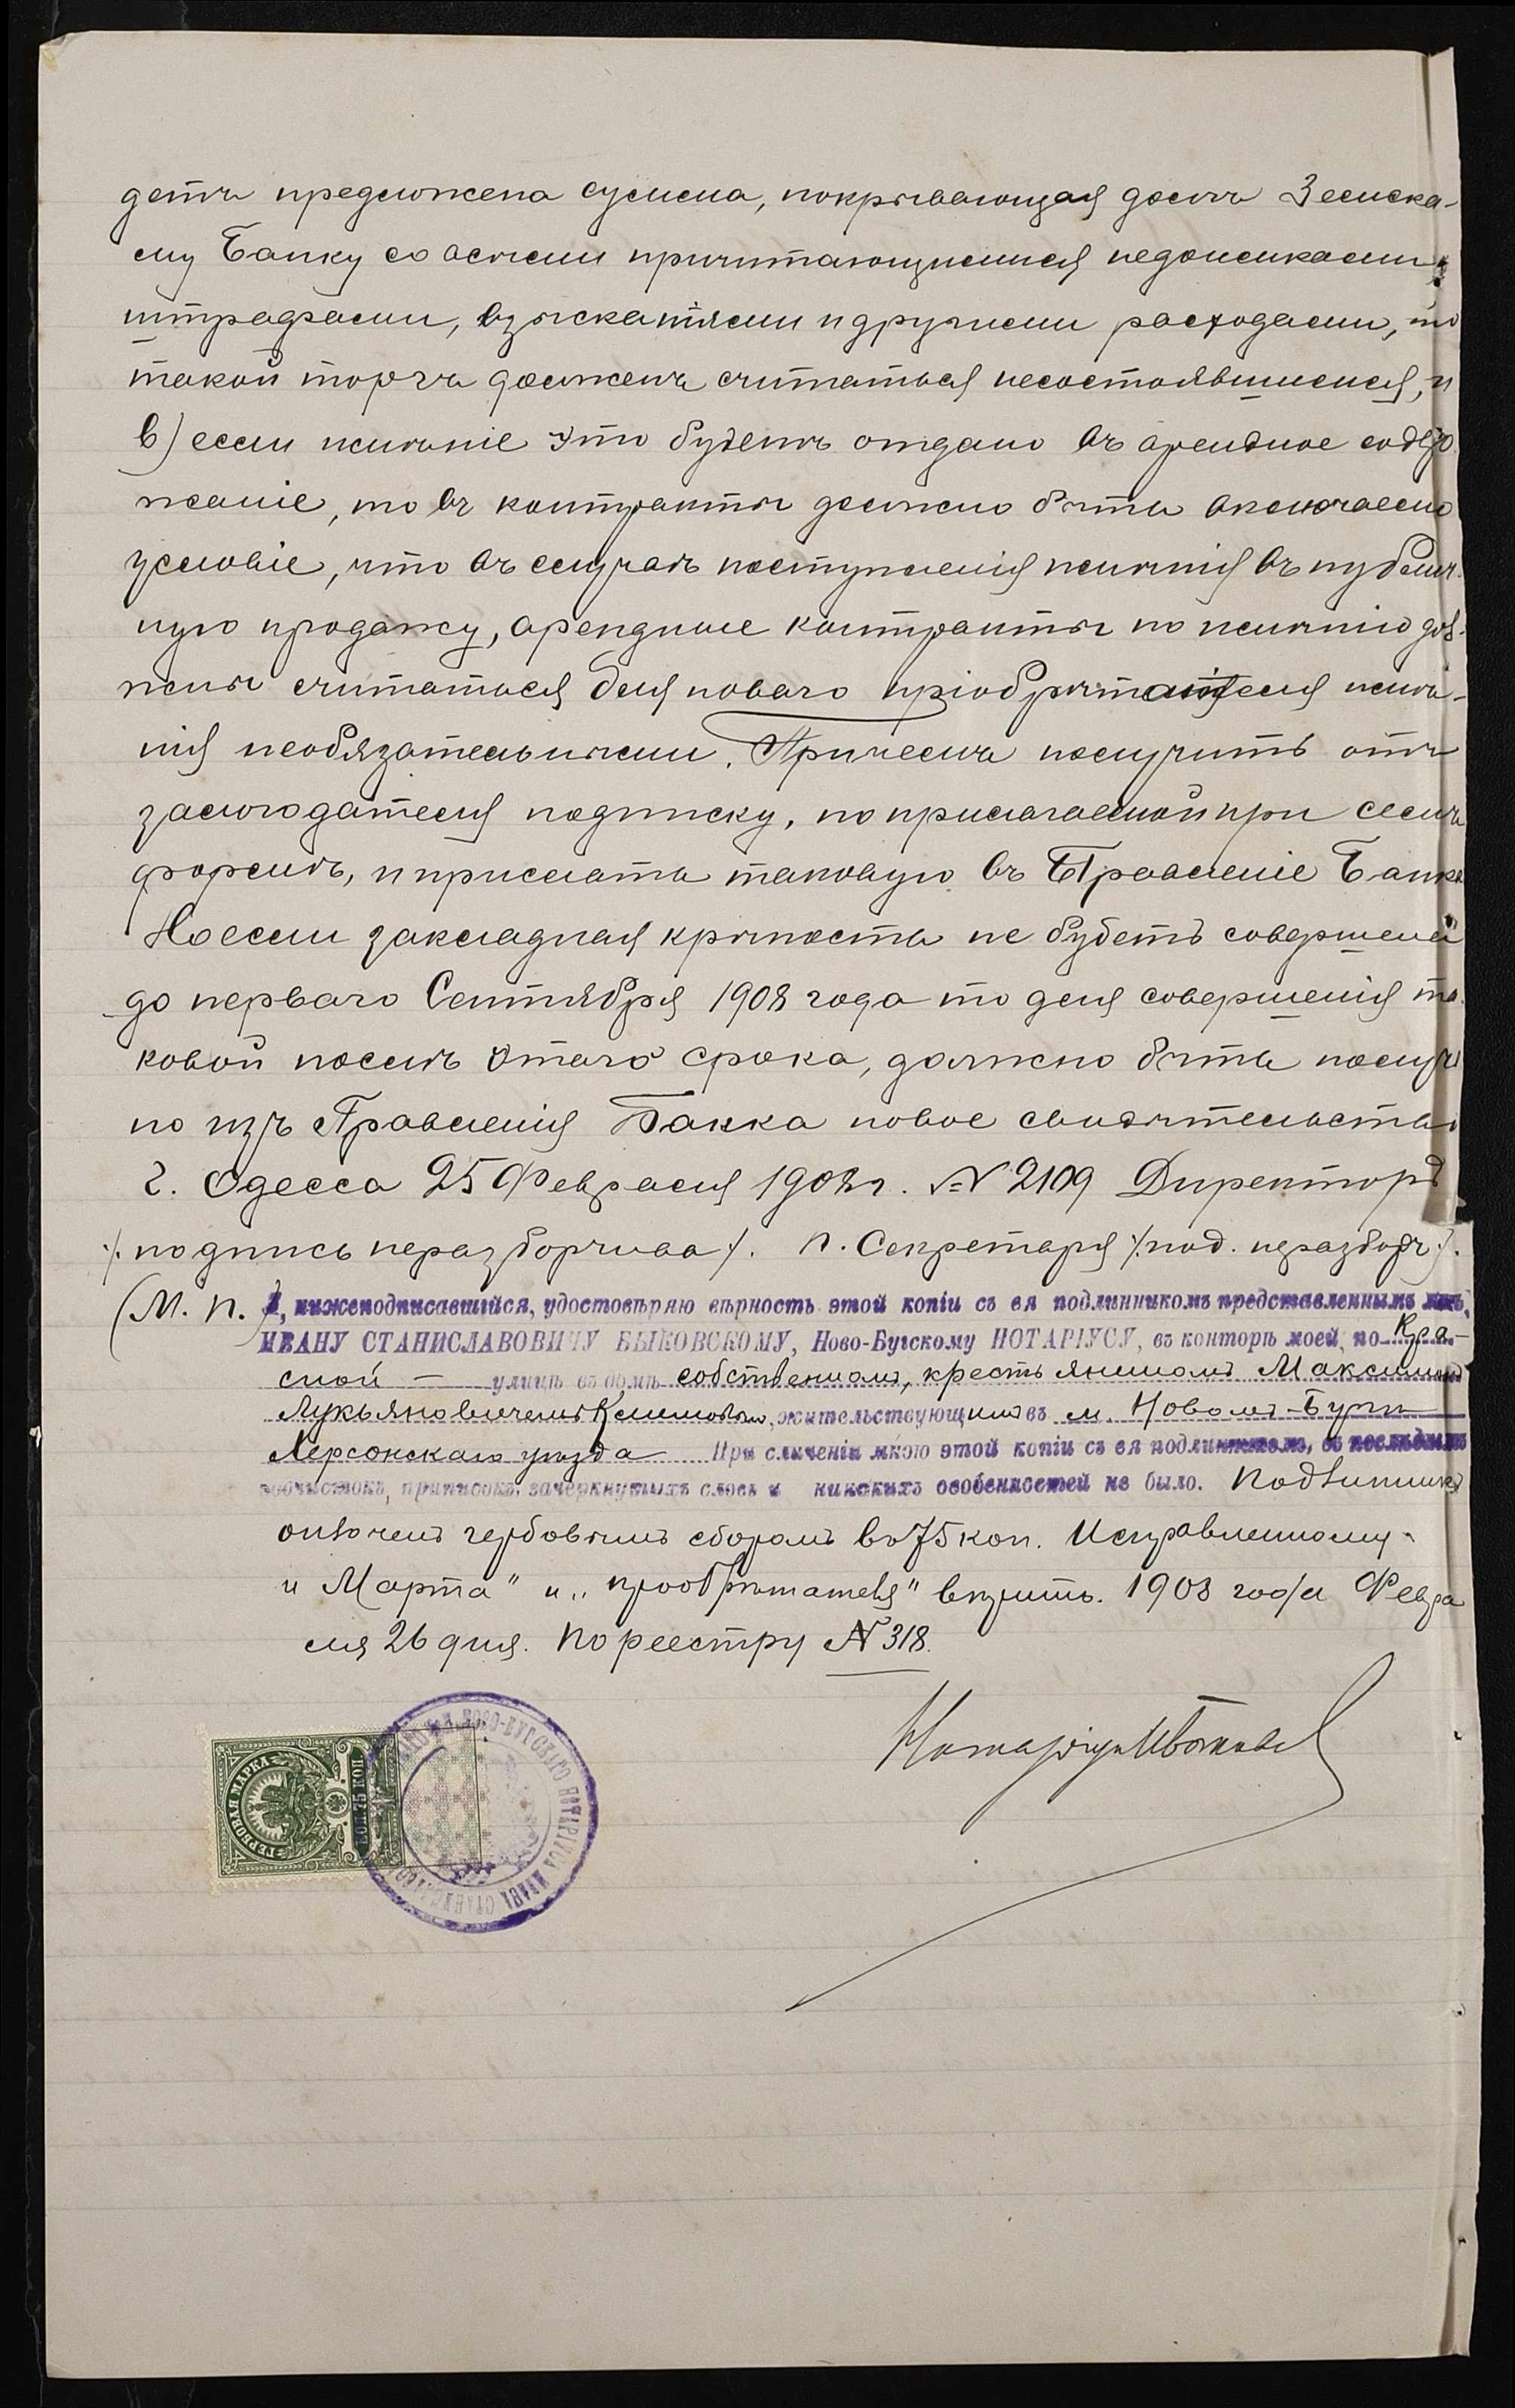 детъ предложена сумма, покрывающая долгъ Земска-
му Банку со всѣми причитающимися недоимками,
штрафами, взысканіями и другими расходами, то
такой торгъ долженъ считаться несостоявшимся, и
в) если имѣніе это будетъ отдано въ арендное содер-
жаніе, то въ контрактѣ должно быть включаемо
условіе, что въ случаѣ поступленія имѣнія въ публич-
ную продажу, арендные контракты по имѣнію дол-
жны считаться для новаго пріобрѣтателя имѣ-
нія необязательными. Причемъ получить отъ
залогодателя подписку, по прилагаемой при семъ
формѣ, и прислать таковую въ Правленіе Банка
Но если закладная крѣпость не будетъ совершена
до перваго Сентября 1908 года то для совершенія та-
ковой послѣ этого срока, должно быть получе-
но изъ Правленія Банка новое свидѣтельство
г. Одесса 25 Февраля 1908 г. № 2109 Директоръ
/. подпись неразборчива /. п. Секретаря /. под. неразборч /.
(М. П.) Я, нижеподписавшійся, удостовѣряю вѣрность этой копіи съ ея подлинникомъ представленнымъ мнѣ,
ИВАНУ СТАНИСЛАВОВИЧУ БЫКОВСКОМУ, Ново-Бугскому НОТАРІУСУ, въ конторѣ моей, по Кра-
сной — улицѣ въ домѣ собственномъ, крестьяниномъ Максимомъ
Лукьяновичемъ Климовымъ, жительствующимъ въ м. Новомъ-Бугѣ
Херсонскаго уѣзда При сличеніи мною этой копіи съ ея подлинникомъ, въ послѣднемъ
подчистокъ, приписокъ, зачеркнутыхъ словъ и никакихъ особенностей не было. Подлинникъ
оплоченъ гербовымъ сборомъ въ 75 коп. Исправленному
и Марта" и „пріобрѣтателя" вѣрить. 1908 года Февра
ля 26 дня. По реестру № 318.
Нотаріусъ Быковскій
ГЕРБОВАЯ МАРКА
75 КОП
НОВО-БУГСКАГО НОТАРІУСА ИВАНА СТАНИСЛАВОВ